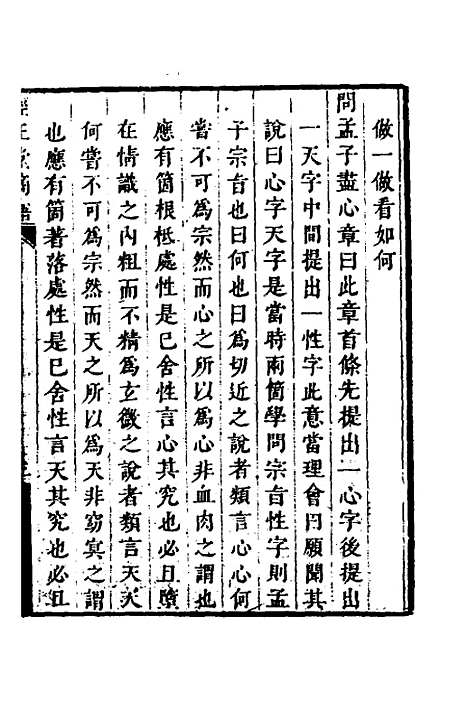 做一做看如何
問孟子盡心章曰此章首條先提出一心字後提出
一天字中間提出一性字此意當理會曰願聞其
說曰心字天字是當時兩箇學問宗旨性字則孟
子宗旨也曰何也曰為切近之說者類言心心何
嘗不可為宗然而心之所以為心非血肉之謂也
應有箇根柢處性是已舍性言心其究也必且墮
在情識之內粗而不精為玄微之說者類言天天
何嘗不可為宗然而天之所以為天非窈冥之謂
也應有箇著落處性是已舍性言天其究也必且